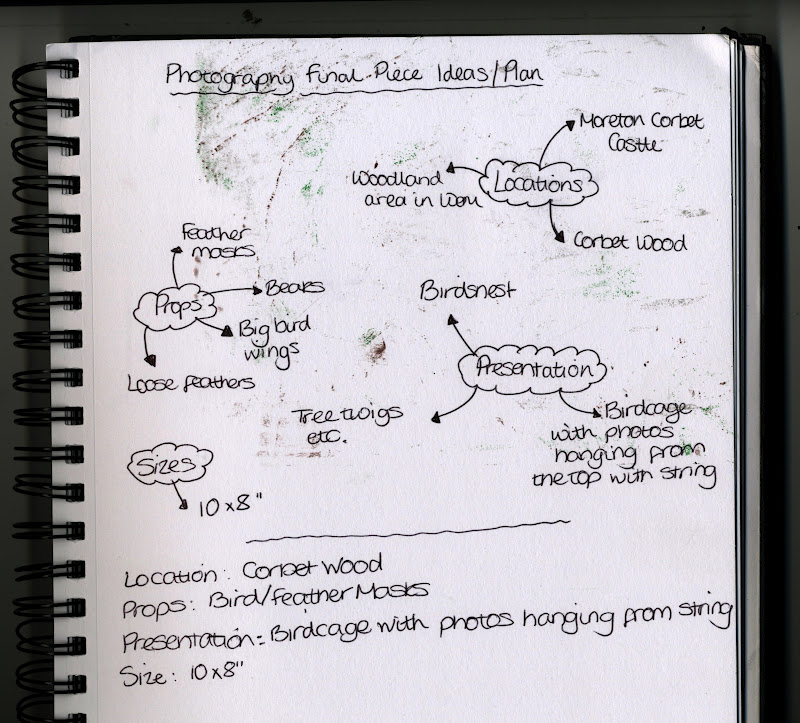 Photography Final Piece Ideas/Plan
Moreton Corbet
Castle
Locations
Woodland
area in Wem
Corbet Wood
Feather
masks
Props
Beaks
Big bird
wings
Loose feathers
Birdsnest
Presentation
Tree twigs
etc.
Birdcage
with photos
hanging from
the top with string
Sizes
10x8"
Location: Corbet Wood
Props: Bird/feather Masks
Presentation: Birdcage with photos hanging from string
Size: 10x8"